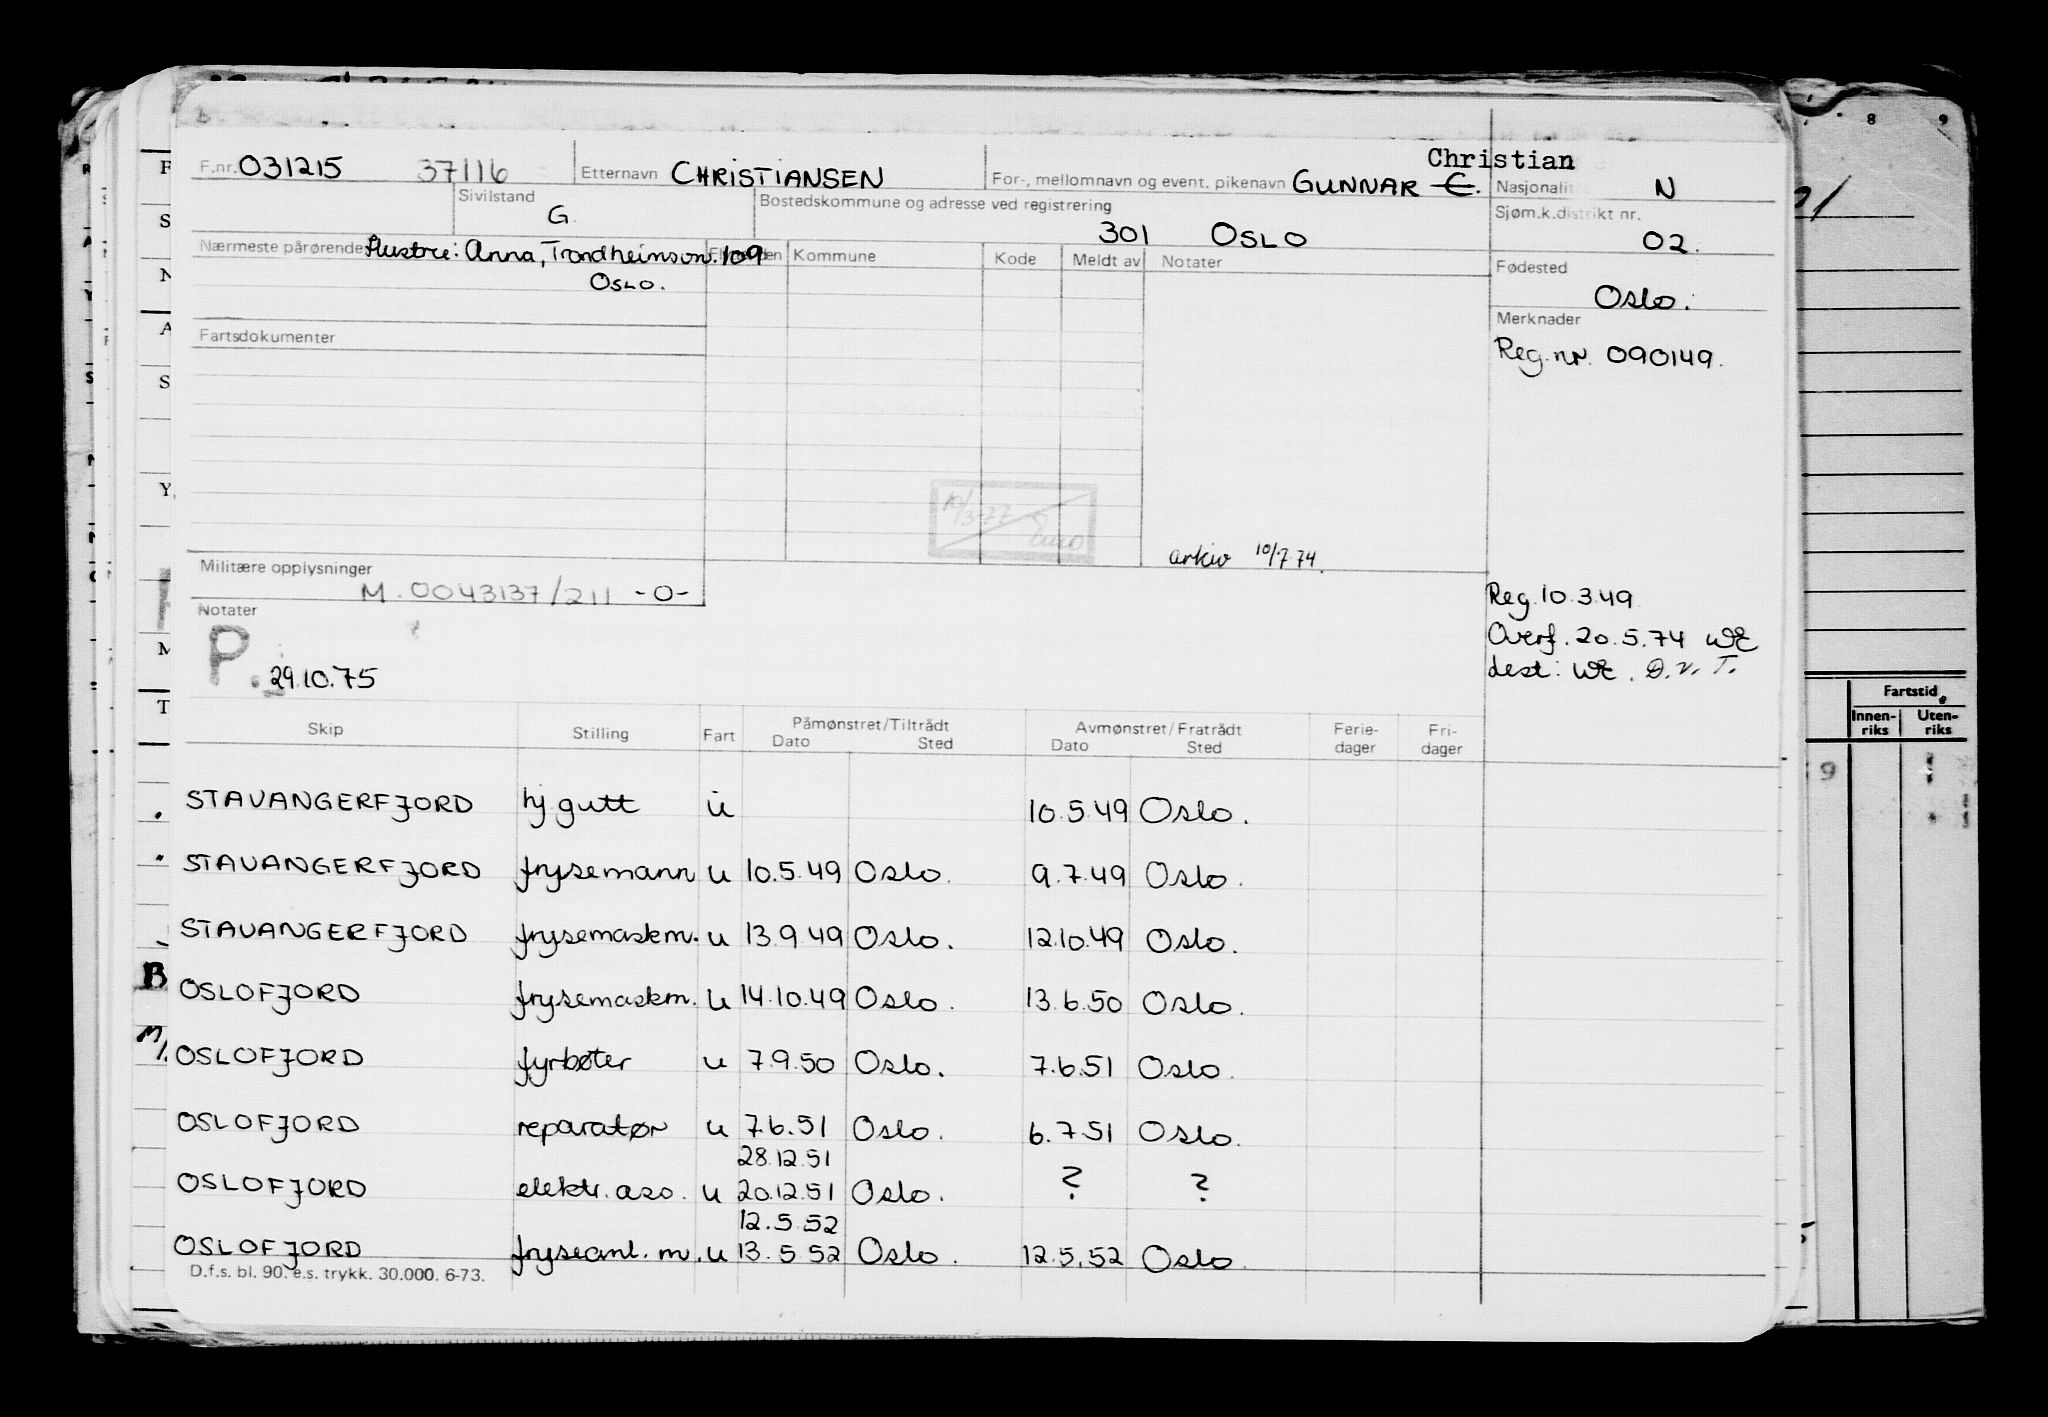 Christian
F.nr. 031215 37116 Etternavn CHRISTIANSEN For-, mellomnavn og event. pikenavn GUNNAR C. Nasjonalit N
Sivilstand G. Bostedskommune og adresse ved registrering 301 OSLO Sjøm.k.distrikt nr. 02.
Nærmeste pårørende Hustru: Anna, Trondheimsvn. 109 Kommune Kode Meldt av Notater
OSLO.
Fødested Oslo.
Fartsdokumenter
Merknader
Reg. nr. 090149.
10/3-77
arkiv 10/7.74.
Militære opplysninger
M. 0043137/211 -0-
Notater
P. 29.10.75
Reg. 10.3.49.
Overf. 20.5.74 WE
Lest: WE. D.v.T.
Skip Stilling Fart Påmønstret/Tiltrådt Avmønstret/Fratrådt Ferie- Fri-
Dato Sted Dato Sted dager dager
STAVANGERFJORD hj gutt u 10.5.49 Oslo.
STAVANGERFJORD frysemann u 10.5.49 Oslo. 9.7.49 Oslo.
STAVANGERFJORD frysemaskm. u 13.9.49 Oslo. 12.10.49 Oslo.
OSLOFJORD frysemaskm. u 14.10.49 Oslo. 13.6.50 Oslo.
OSLOFJORD fyrbøter u 7.9.50 Oslo. 7.6.51 Oslo.
OSLOFJORD reparatør u 7.6.51 Oslo. 6.7.51 Oslo.
28.12.51
OSLOFJORD elektr. ass. u 20.12.51 Oslo. ? ?
12.5.52
OSLOFJORD fryseanl. m. u 13.5.52 Oslo. 12.5.52 Oslo.
D.f.s. bl. 90. e.s. trykk. 30.000. 6-73.
8 9
Fartstid
Innen- Uten-
riks riks